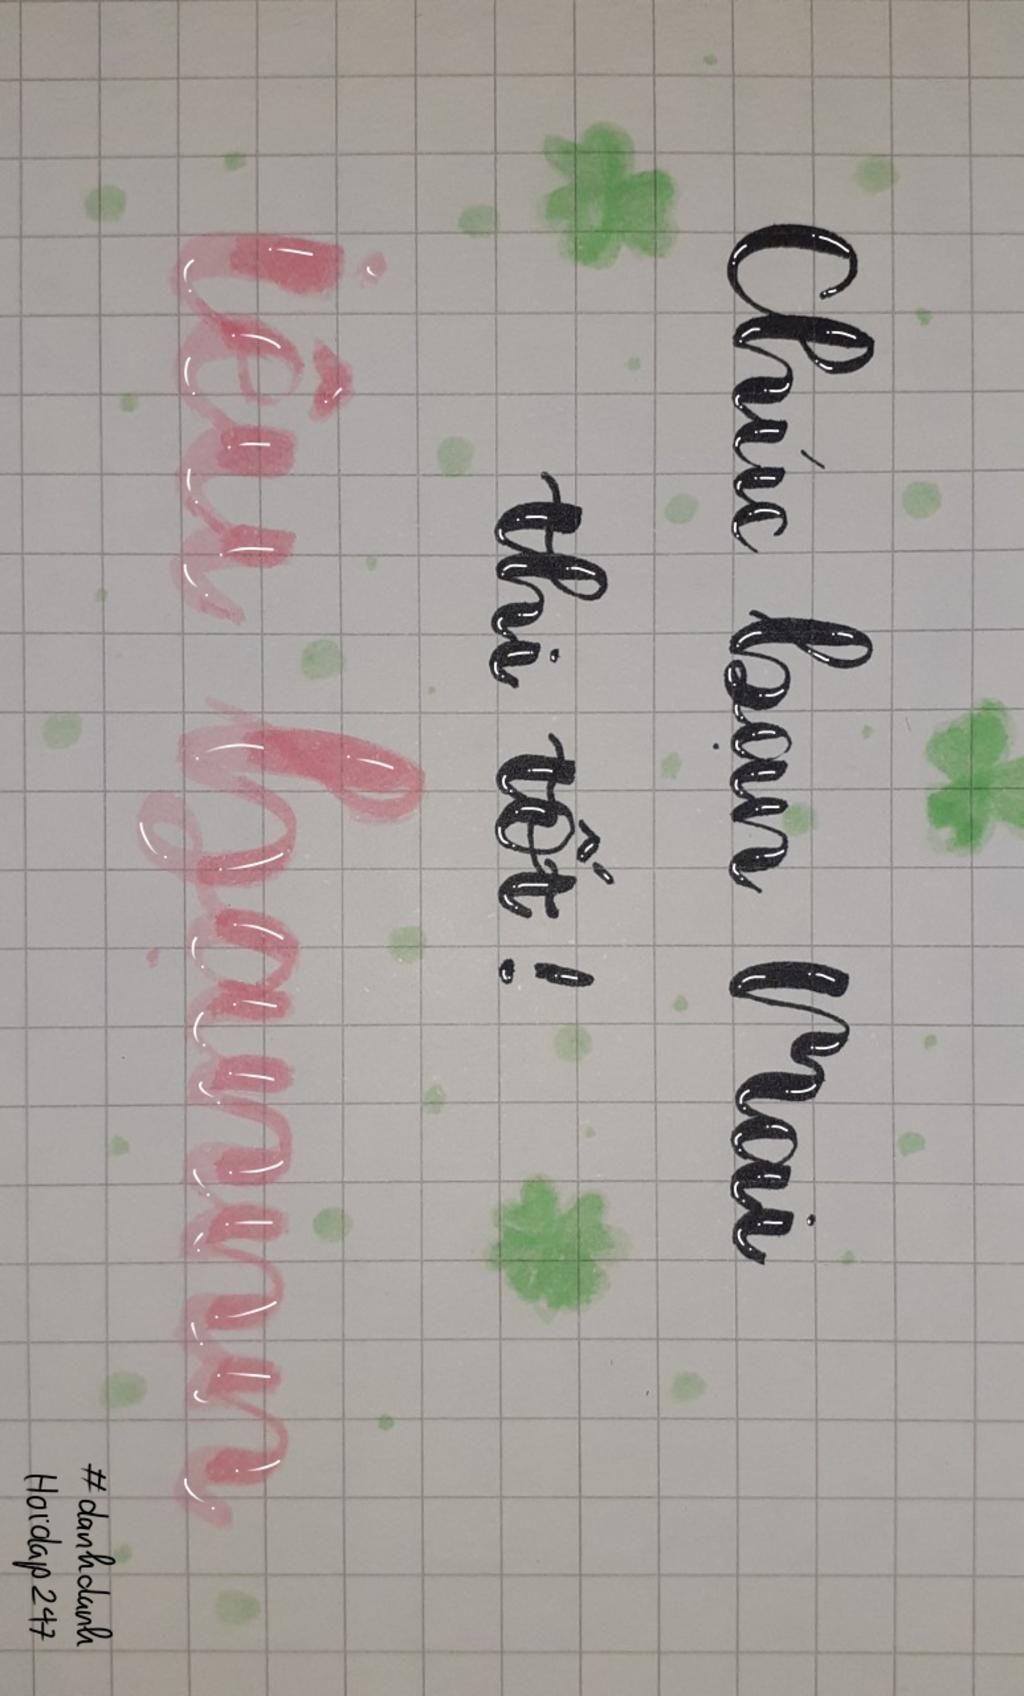 Chúc bạn Mai
thi tốt !
iêu bạnnnn
#danhdanh
Hoidap247